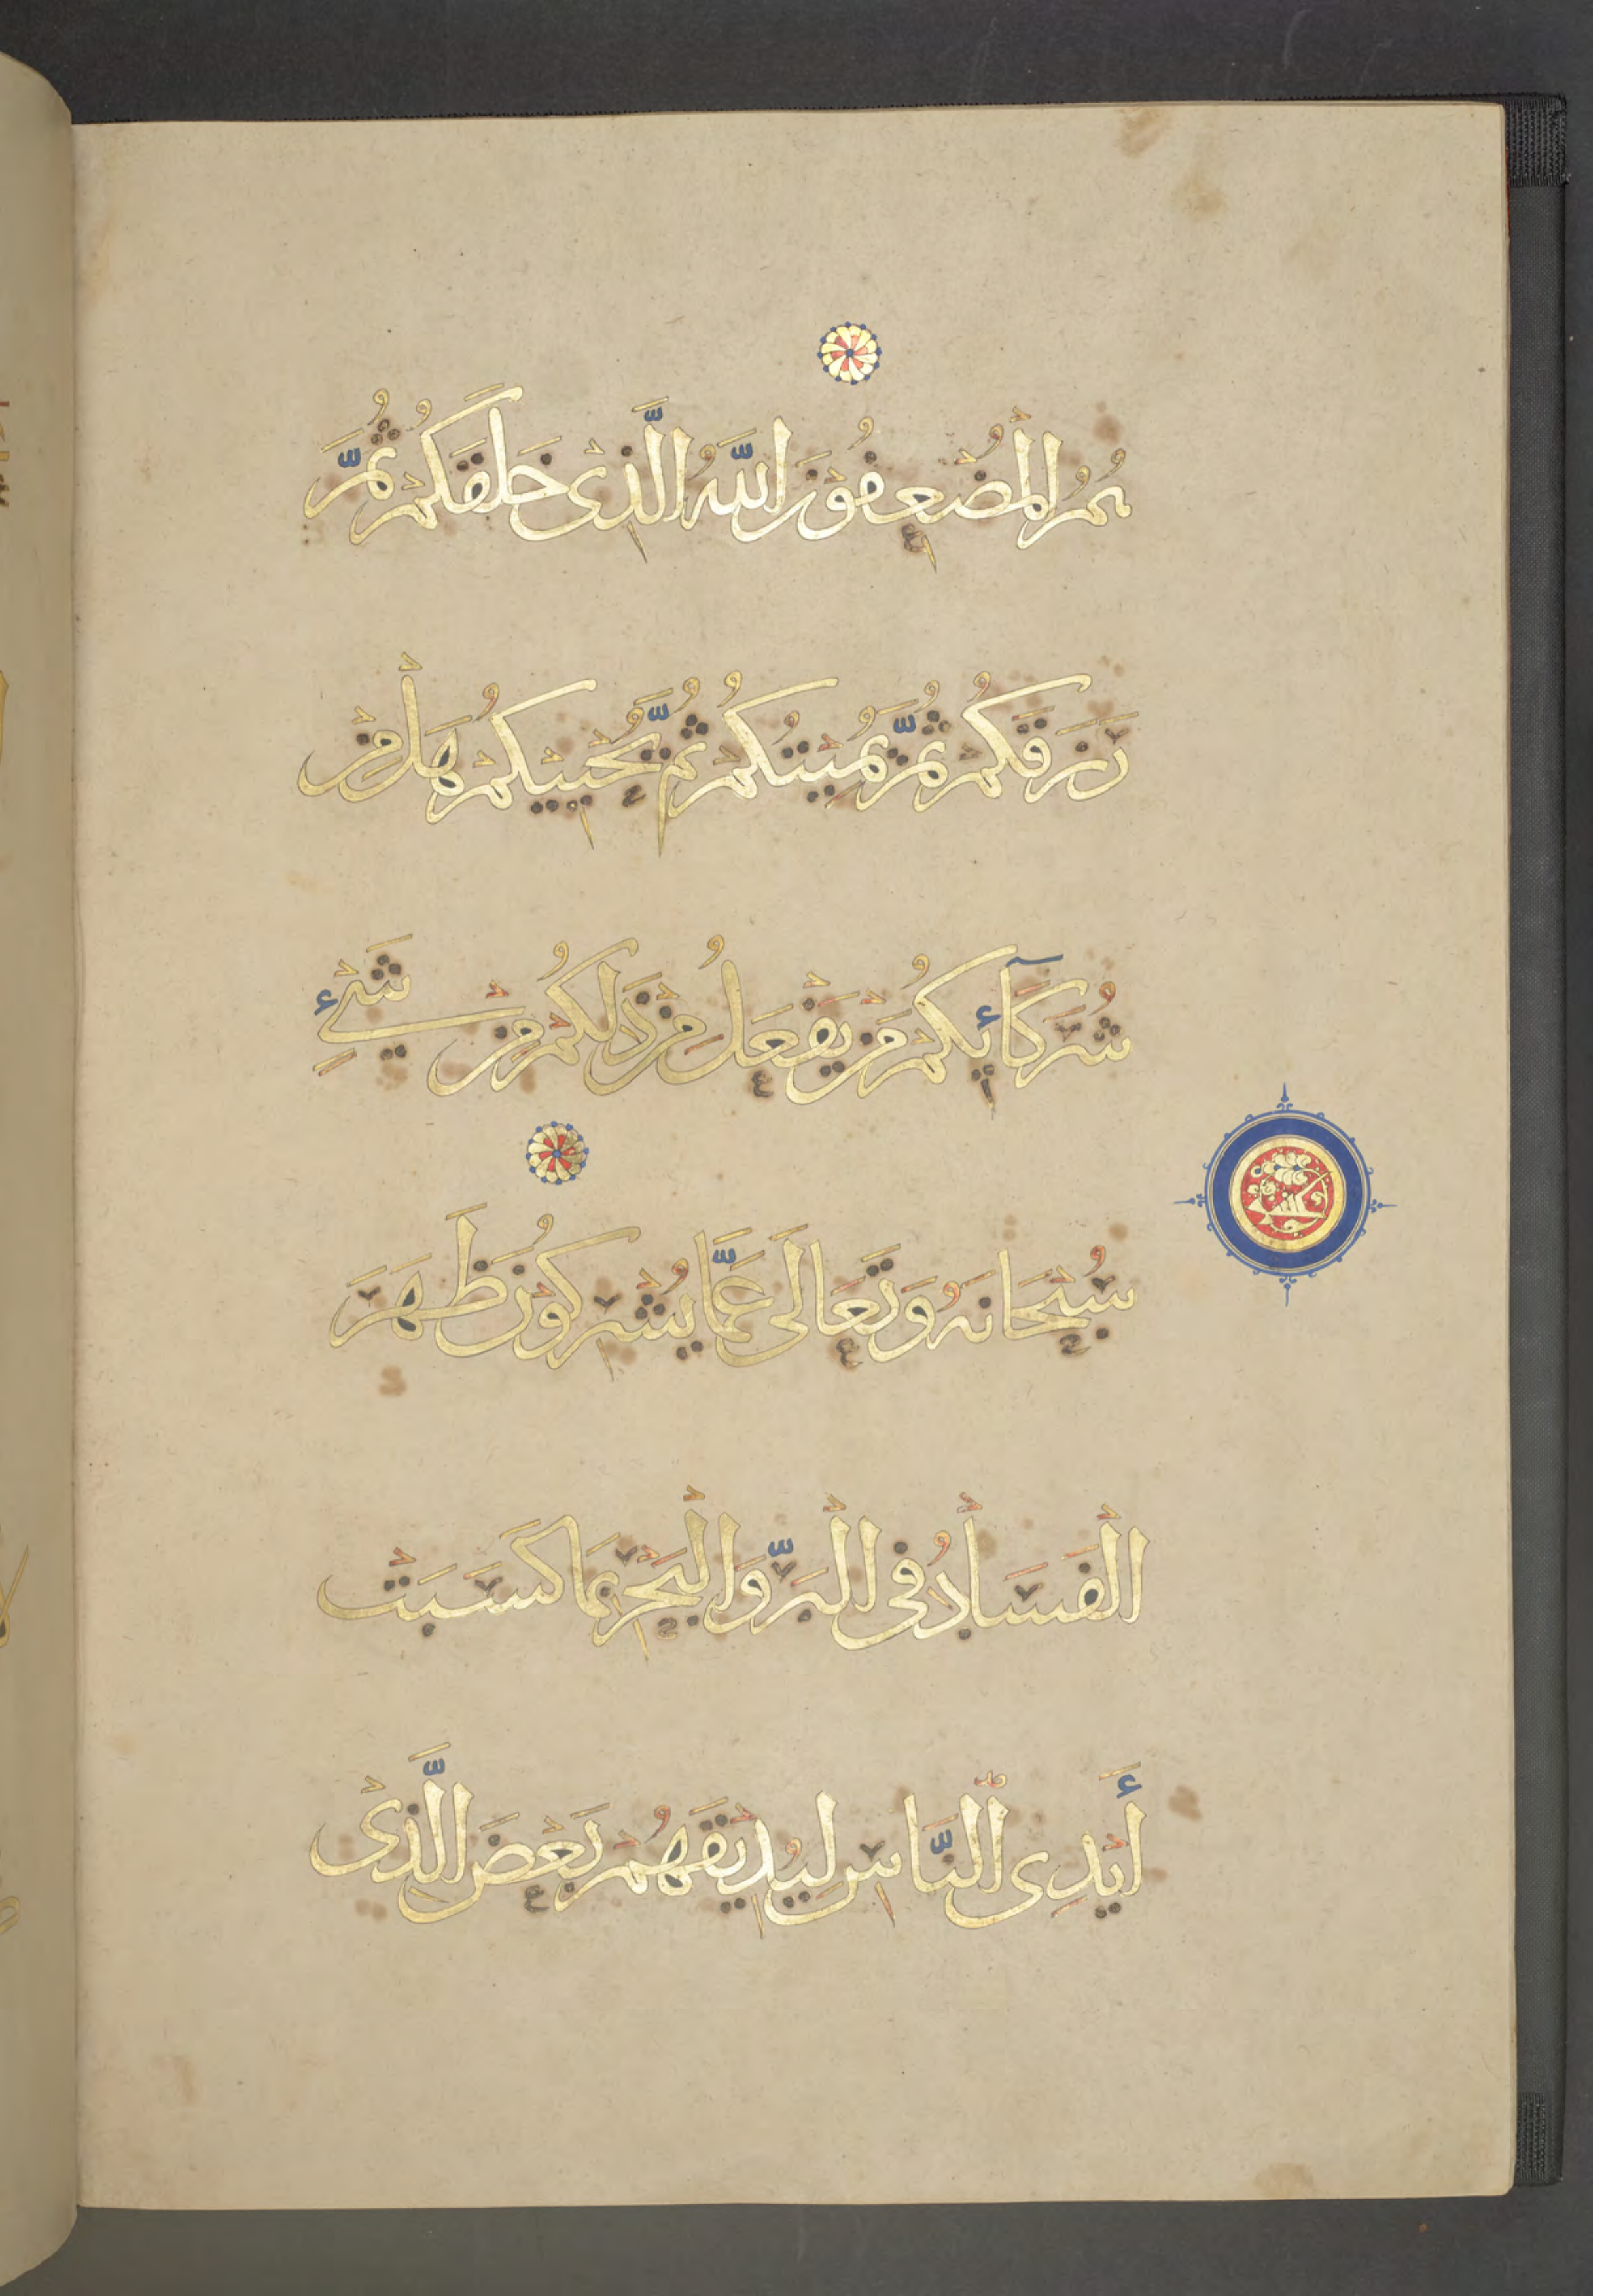 هُمُ الْمُضْعِفُونَ اللَّهُ الَّذِي خَلَقَكُمْ ثُمَّ
رَزَقَكُمْ ثُمَّ يُمِيتُكُمْ ثُمَّ يُحْيِيكُمْ هَلْ مِنْ
شُرَكَآئِكُمْ مَنْ يَفْعَلُ مِنْ ذَلِكُمْ مِنْ شَيْءٍ
سُبْحَانَهُ وَتَعَالَى عَمَّا يُشْرِكُونَ ظَهَرَ
الْفَسَادُ فِي الْبَرِّ وَالْبَحْرِ بِمَا كَسَبَتْ
أَيْدِي النَّاسِ لِيُذِيقَهُمْ بَعْضَ الَّذِي